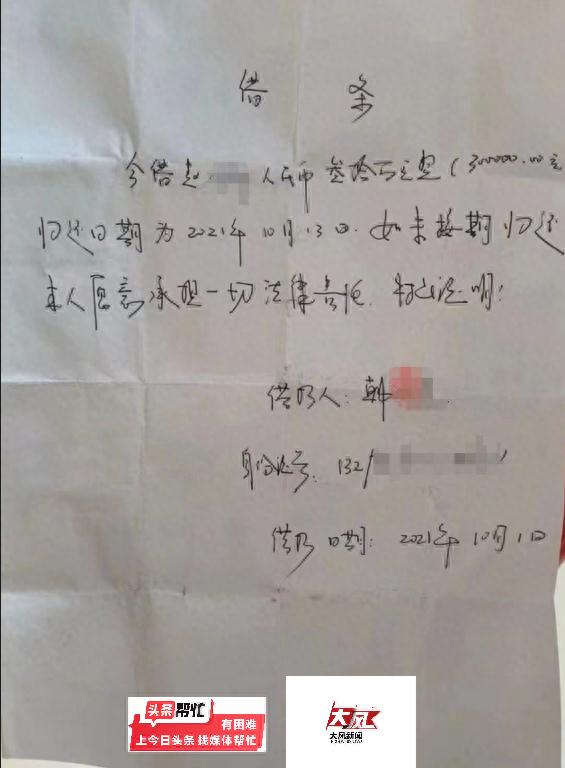 借条
今借赵 人民币叁拾万元整(300000.00元
归还日期为2021年10月13日.如未按期归还
本人愿意承担一切法律责任.特此证明!
借款人:韩
身份证号:132
借款日期:2021年10月1日
头条帮忙
有困难
上今日头条 找媒体帮忙
大风
大风新闻